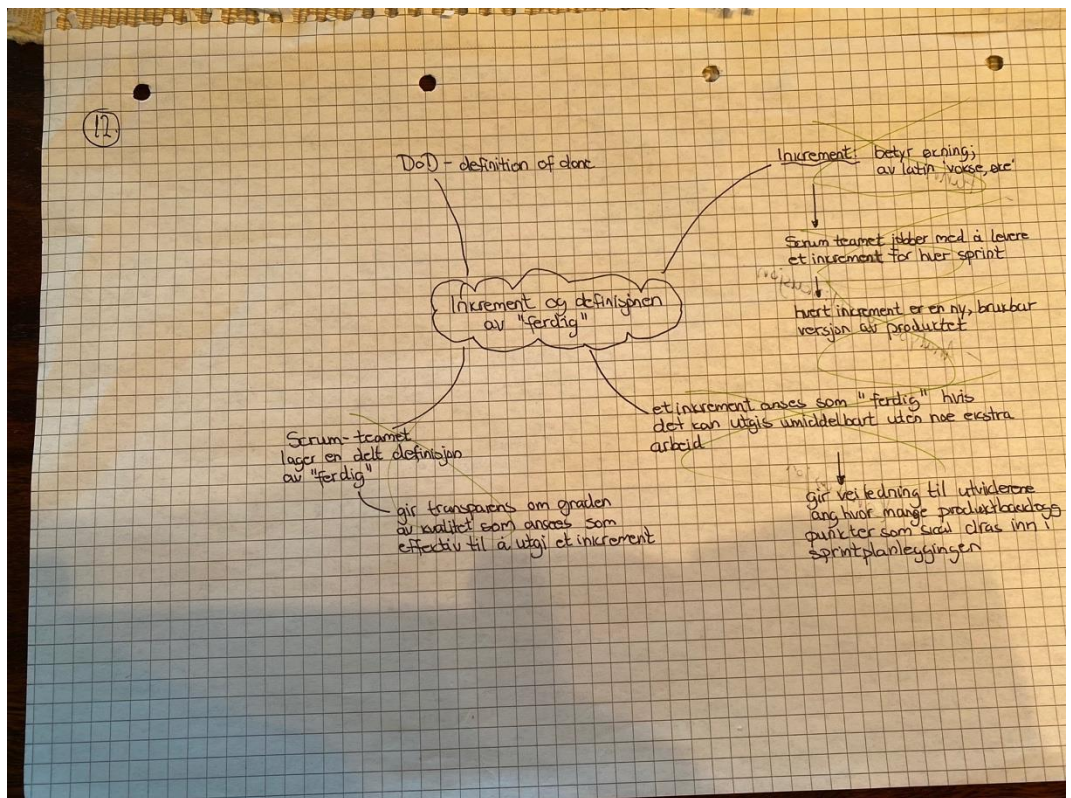 12.
DoD - definition of done
Increment: betyr økning;
av latin 'vokse, øke'
Scrum teamet jobber med å levere
et increment for hver sprint
hvert increment er en ny, brukbar
versjon av productet
Increment og definisjonen
av "ferdig"
et increment anses som "ferdig" hvis
det kan utgis umiddelbart uten noe ekstra
arbeid
gir veiledning til utviderene
ang hvor mange productbacklogg
punkter som skal dras inn i
sprintplanleggingen
Scrum-teamet
lager en delt definisjon
av "ferdig"
gir transparens om graden
av kvalitet som ansees som
effektiv til å utgi et increment